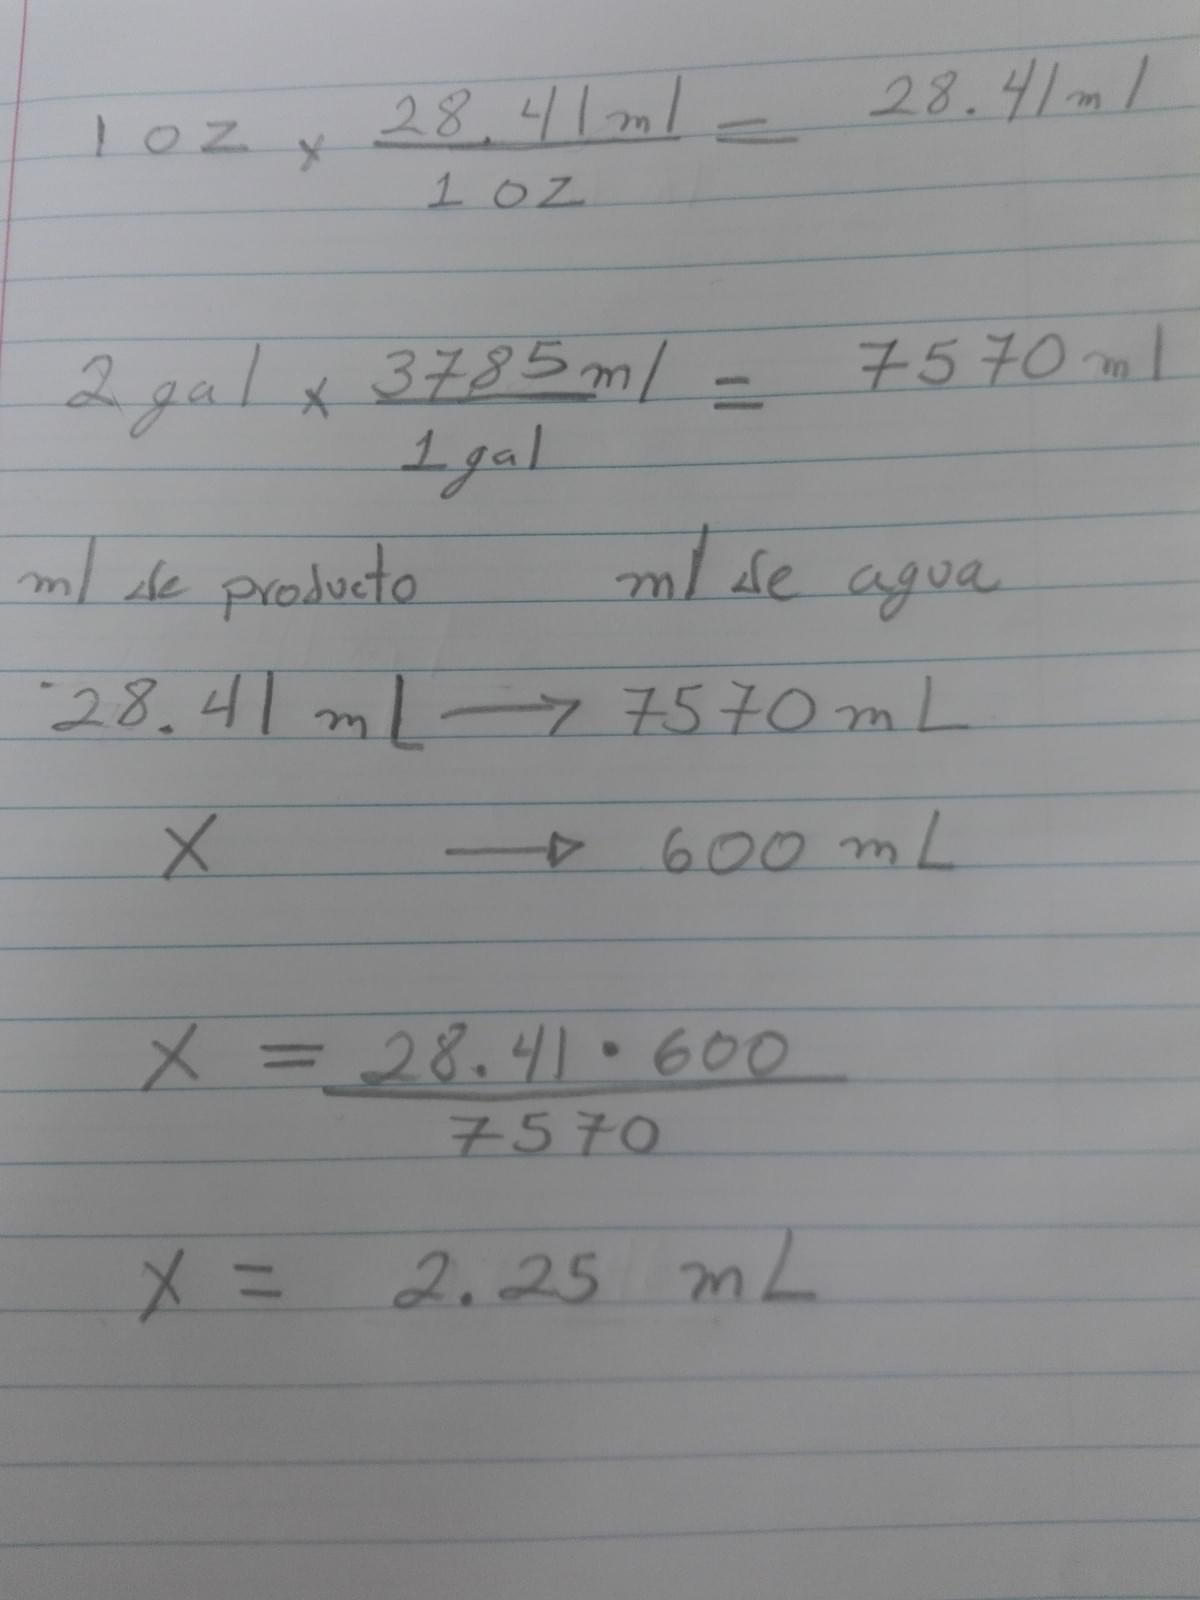 1 oz x 28.41 ml = 28.41 ml
1 oz
2 gal x 3785 ml = 7570 ml
1 gal
ml de producto ml de agua
28.41 mL → 7570 mL
X → 600 mL
X = 28.41 · 600
7570
X = 2.25 mL